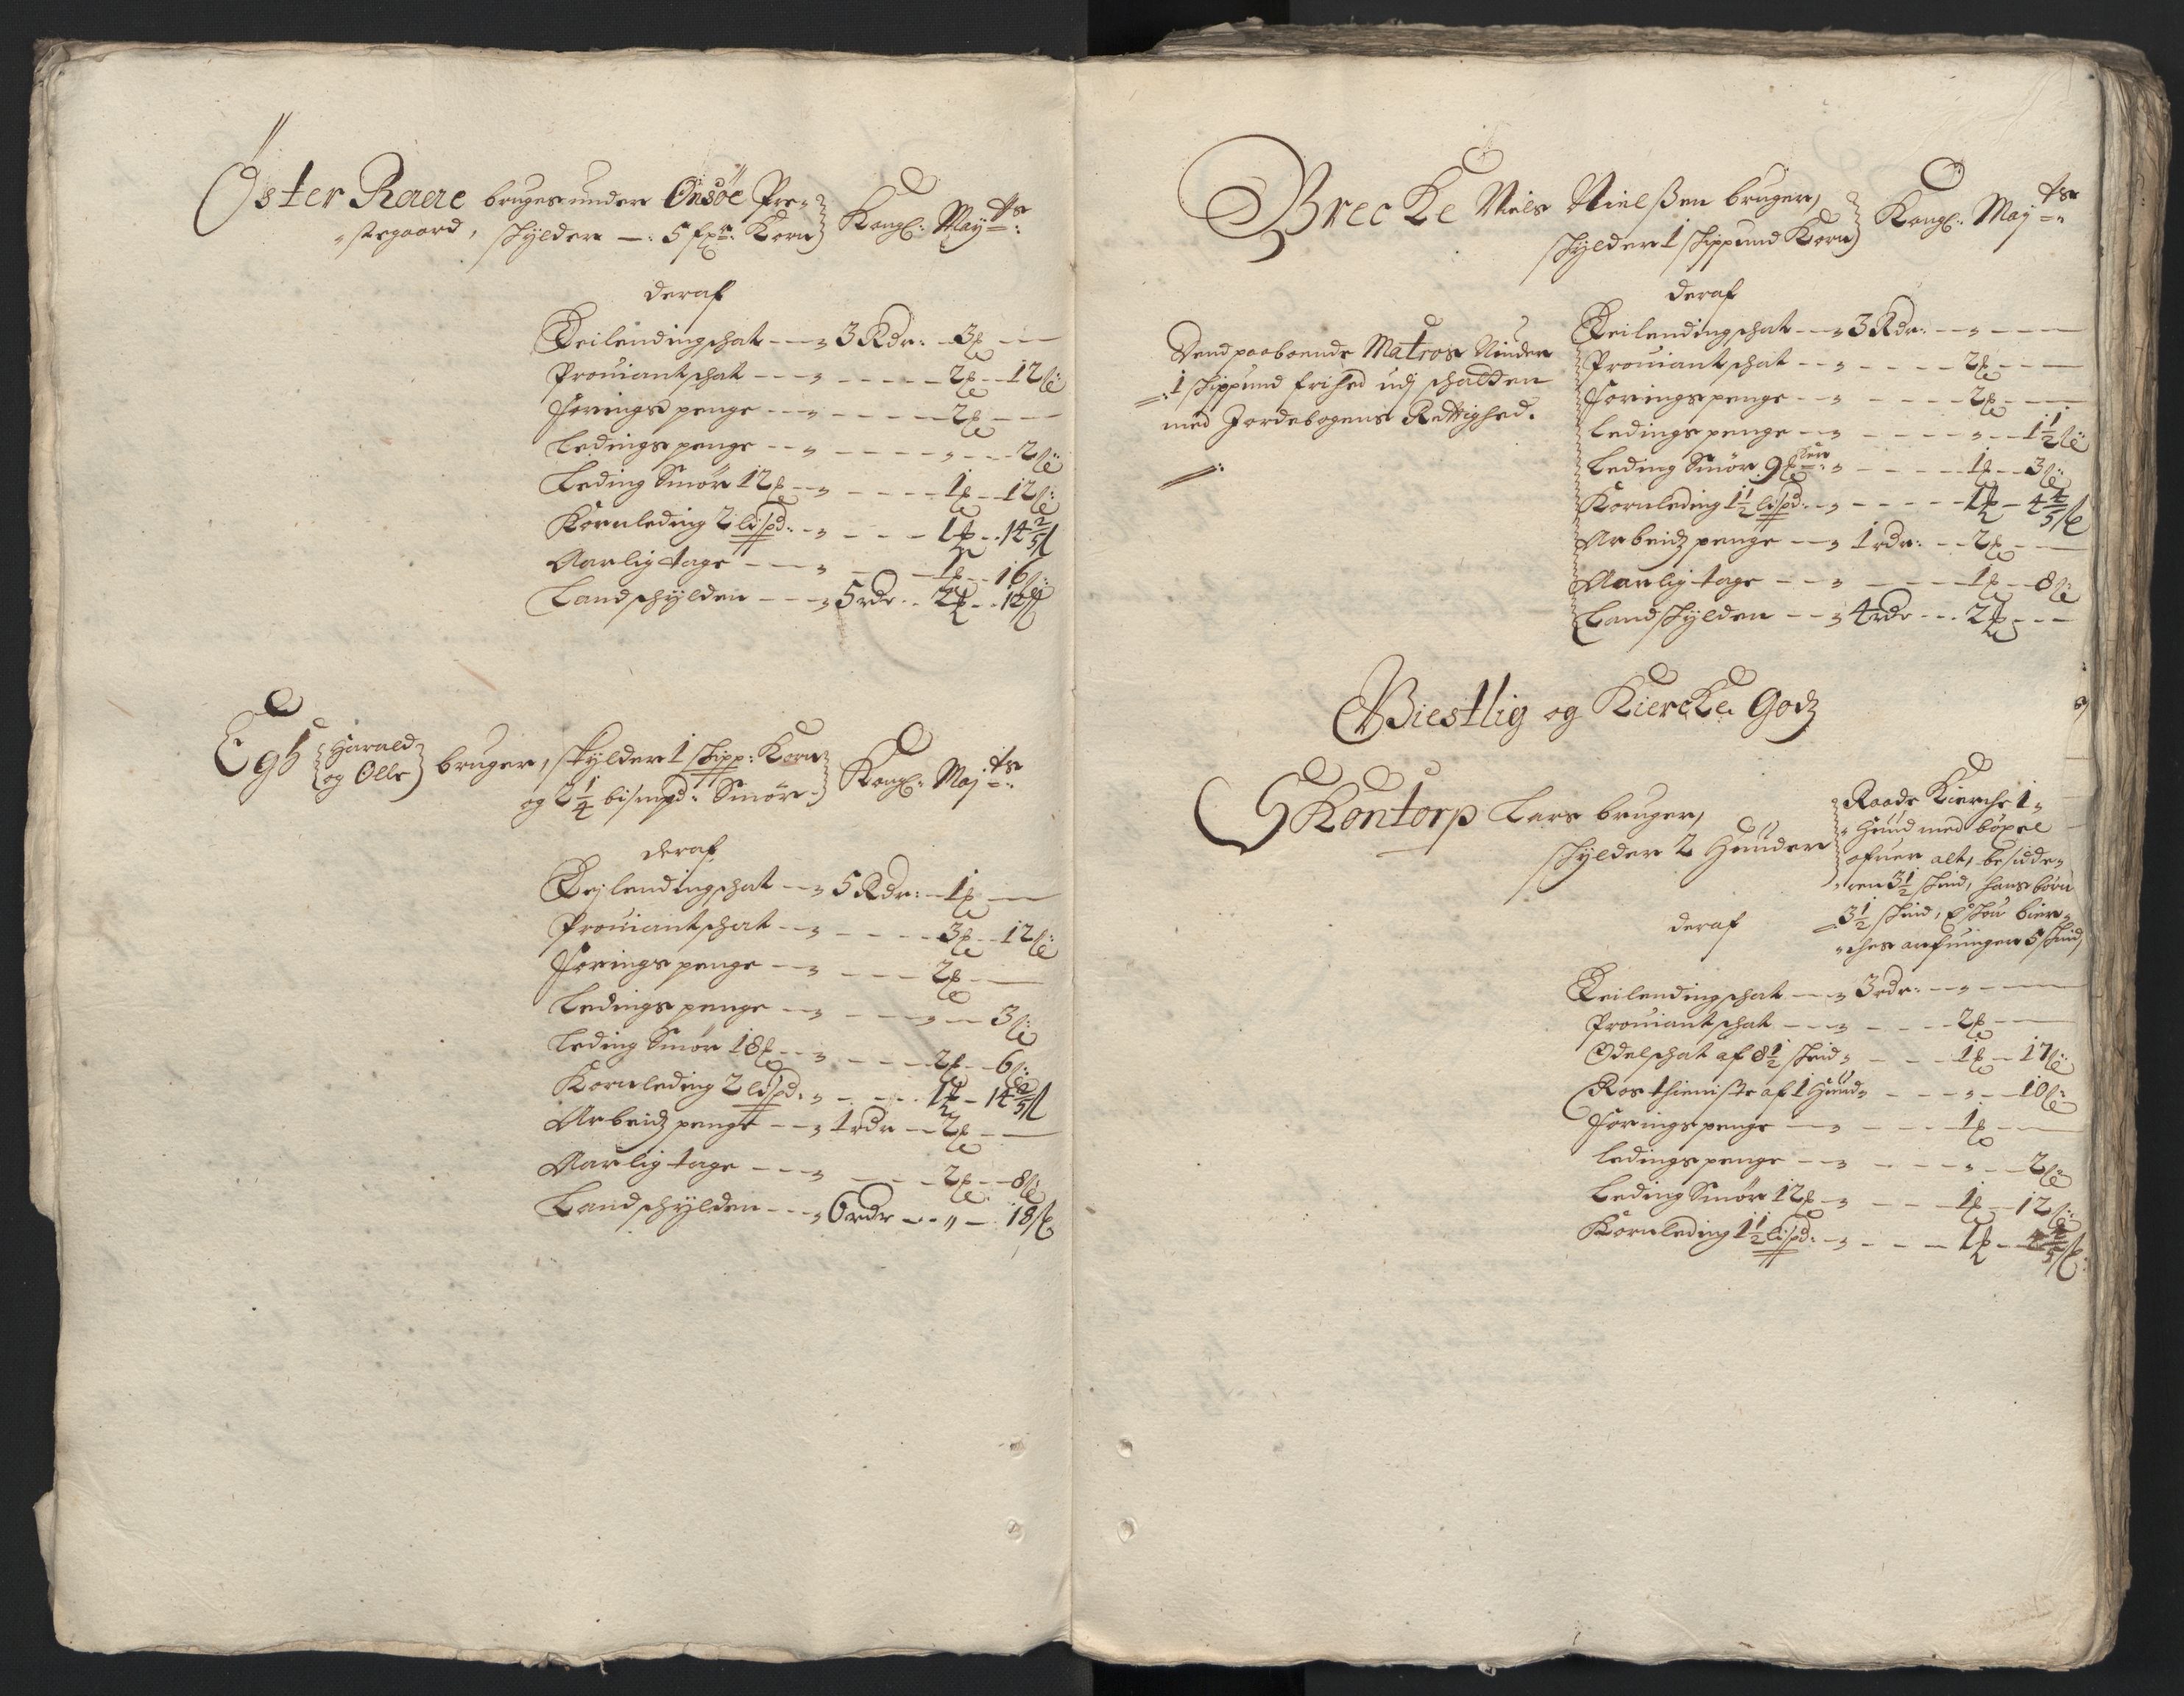 Öster Raae bruges under Onsöe Pre-
stegaard, schylder —: 5 sker: Korn Kongl: Maytts:
deraf
Leilendingschat --- 3 Rdr: - 3 ₰ --
Prouiantschat --- 2 ₰ -- 12 ß:
Foringspenge --- 2 ₰ --
Ledingspenge --- 2 ß:
Leding Smör 12 ₰ -- 1 ₰ -- 12 ß:
Kornleding 2 lispd: -- 1 ₰ -- 14 2/5 ß
Aarlig tage --- 1 ₰ -- 16 ß:
Landschylden --- 5 rdr -- 2 ₰ -- 12 ß
Egh Harald
og Olle bruger, schylder 1 schipp: Korn
og 2 1/4 bismpd: Smör Kongl: Majts:
deraf
Leilendingschat --- 5 Rdr: - 1 ₰ --
Prouiantschat --- 3 ₰ -- 12 ß:
Foringspenge --- 2 ₰ --
Ledingspenge --- 3 ß:
Leding Smör 18 ₰ -- 2 ₰ -- 6 ß:
Kornleding 2 lispd: -- 1 ₰ - 14 2/5 ß
Arbeidz penge --- 1 rdr -- 2 ₰ --
Aarlig tage --- 2 ₰ -- 8 ß
Landschylden --- 6 rdr -- „ -- 18 ß
Brecke Niels Nielßen bruger,
schylder 1 schippund Korn Kongl: Majts:
deraf
Dend paaboende Matros Niuder
1 schippund frihed udj schatten
med Jordebogens Rettighed.
Leilendingschat --- 3 Rdr: --
Prouiantschat --- 2 ₰ --
Foringspenge --- 2 ₰ --
Ledingspenge --- 1 1/2 ß:
Leding Smör 9 ₰ -- 1 ₰ -- 3 ß:
Kornleding 1 1/2 lispd: -- 1 ₰ - 4 4/5 ß
Arbeidz penge --- 1 rdr: -- 2 ₰ --
Aarlig tage --- 1 ₰ -- 8 ß:
Landschylden --- 4 rdr -- 2 ₰ --
Biestlig og Kiercke Godz
Skontorp Lars bruger,
schylder 2 Huuder
Raade Kierche 1
Huud med böxel
ofuer alt, besidde-
ren 3 1/2 schind, hans börn
3 1/2 schind, bier-
ches arfuinger 5 schind,
deraf
Leilendingschat --- 3 rdr: --
Prouiantschat --- 2 ₰ --
Odelschat af 8 1/2 schind -- 1 ₰ - 17 ß:
Ros thieniste af 1 Huud -- 10 ß:
Foringspenge --- 1 ₰ --
Ledingspenge --- 2 ß:
Leding Smör 12 ₰ -- 1 ₰ -- 12 ß:
Kornleding 1 1/2 lispd: -- 1 ₰ - 4 4/5 ß: